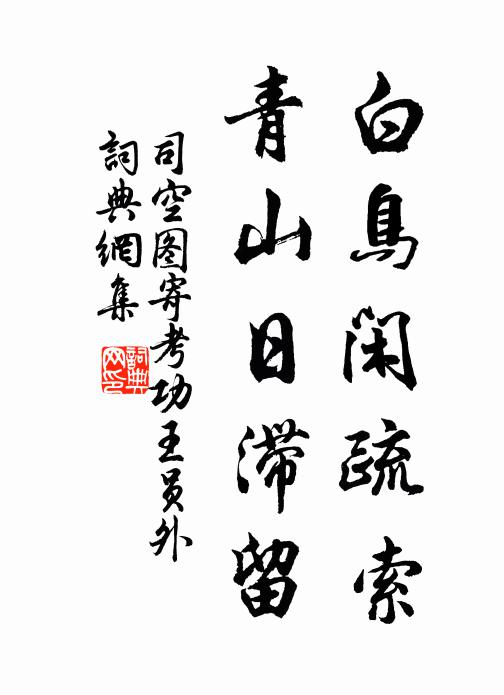 白鳥閑疏索
青山日滯留
司空图寄考功王员外
詞典網集
詞典网印